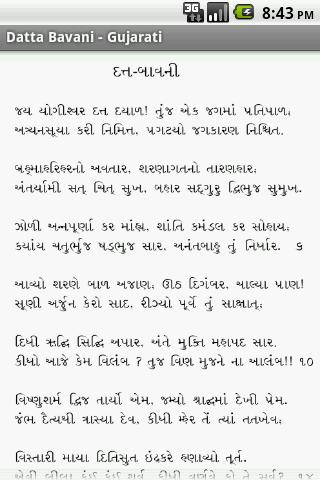 3G 8:43 PM
Datta Bavani - Gujarati
દત્ત-બાવની
જય યોગીશ્વર દત્ત દયાળ! તુંજ એક જગમાં પ્રતિપાળ;
અત્ર્યનસૂયા કરી નિમિત્ત, પ્રગટ્યો જગકારણ નિશ્ચિત.
બ્રહ્માહરિહરનો અવતાર, શરણાગતનો તારણહાર;
અંતર્યામી સત્ ચિત્ સુખ, બહાર સદ્ગુરુ દ્વિભુજ સુમુખ.
ઝોળી અન્નપૂર્ણા કર માંહ્ય, શાંતિ કમંડલ કર સોહાય;
ક્યાંય ચતુર્ભુજ ષડ્ભુજ સાર, અનંતબાહુ તું નિર્ધાર. ૬
આવ્યો શરણે બાળ અજાણ; ઊઠ દિગંબર, ચાલ્યા પ્રાણ!
સૂણી અર્જુન કેરો સાદ, રીઝ્યો પૂર્વે તું સાક્ષાત્;
દિધી ઋદ્ધિ સિદ્ધિ અપાર, અંતે મુક્તિ મહાપદ સાર.
કીધો આજે કેમ વિલંબ ? તુજ વિણ મુજને ના આલંબ!! ૧૦
વિષ્ણુશર્મ દ્વિજ તાર્યો એમ, જમ્યો શ્રાદ્ધમાં દેખી પ્રેમ.
જંભ દૈત્યથી ત્રાસ્યા દેવ, કીધી મ્હેર તેં ત્યાં તતખેવ;
વિસ્તારી માયા દિતિસુત ઇંદ્રકરે હણાવ્યો તૂર્ત.